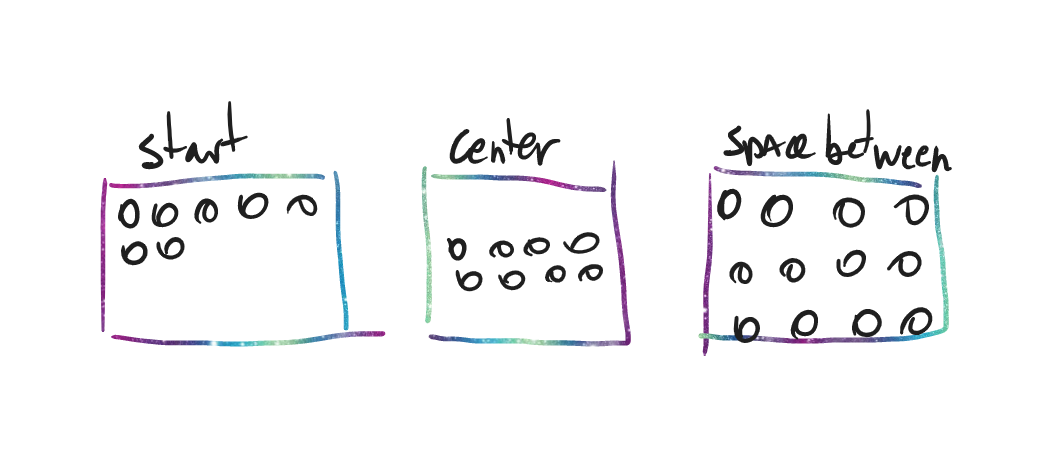 start
center
space between